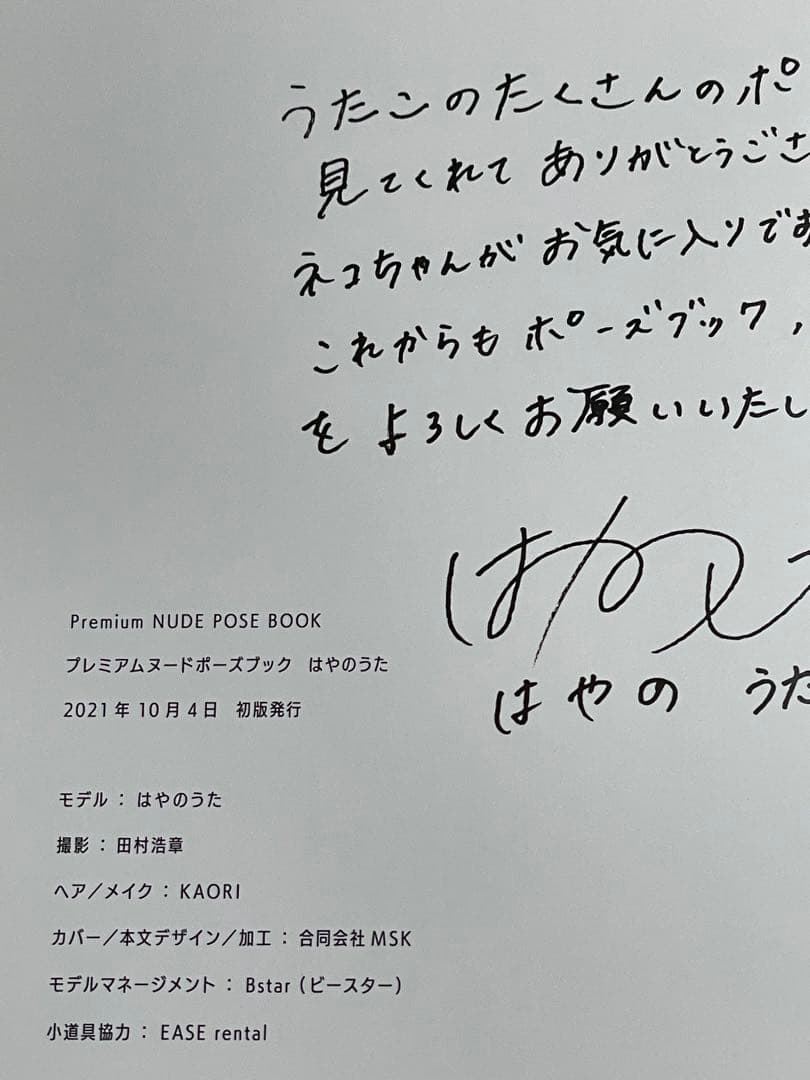 うたこのたくさんのポ
見てくれて ありがとうござ
ネコちゃんが お気に入りです
これからも ポーズブック,
を よろしくお願いいたし
はやのう
はやの うた
Premium NUDE POSE BOOK
プレミアムヌードポーズブック はやのうた
2021年10月4日 初版発行
モデル : はやのうた
撮影 : 田村浩章
ヘア／メイク : KAORI
カバー／本文デザイン／加工 : 合同会社MSK
モデルマネージメント : Bstar（ビースター）
小道具協力 : EASE rental